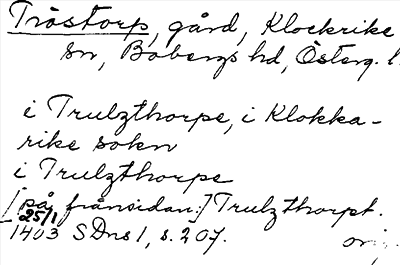 Tråstorp, gård, Klockrike
sn, Bobergs hd, Österg. l.
i Trulzthorpe, i Klokka-
rike sokn
i Trulzthorpe
[på frånsidan:] Trulzthorpt.
25/1
1403 SDns 1, s. 207.
or.